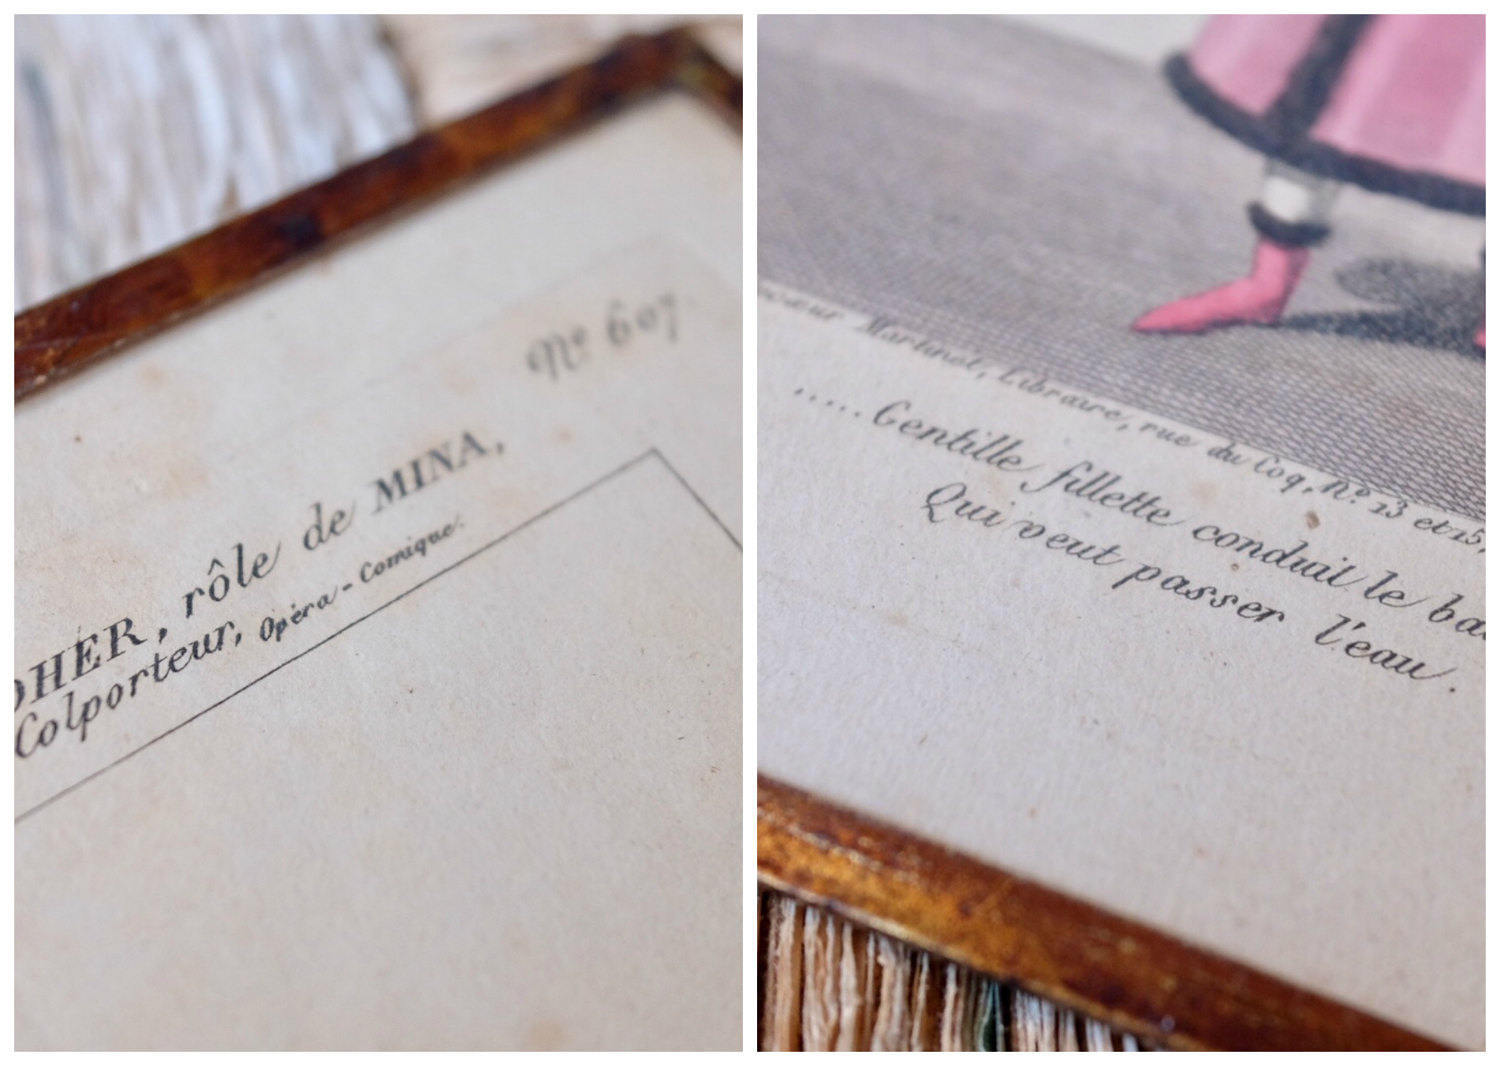 Nº 607
OHER, rôle de MINA,
Colporteur, Opéra-Comique.
Martinet, Libraire, rue du Coq, Nº 13 et 15,
..... Gentille fillette conduit le
Qui veut passer l'eau.